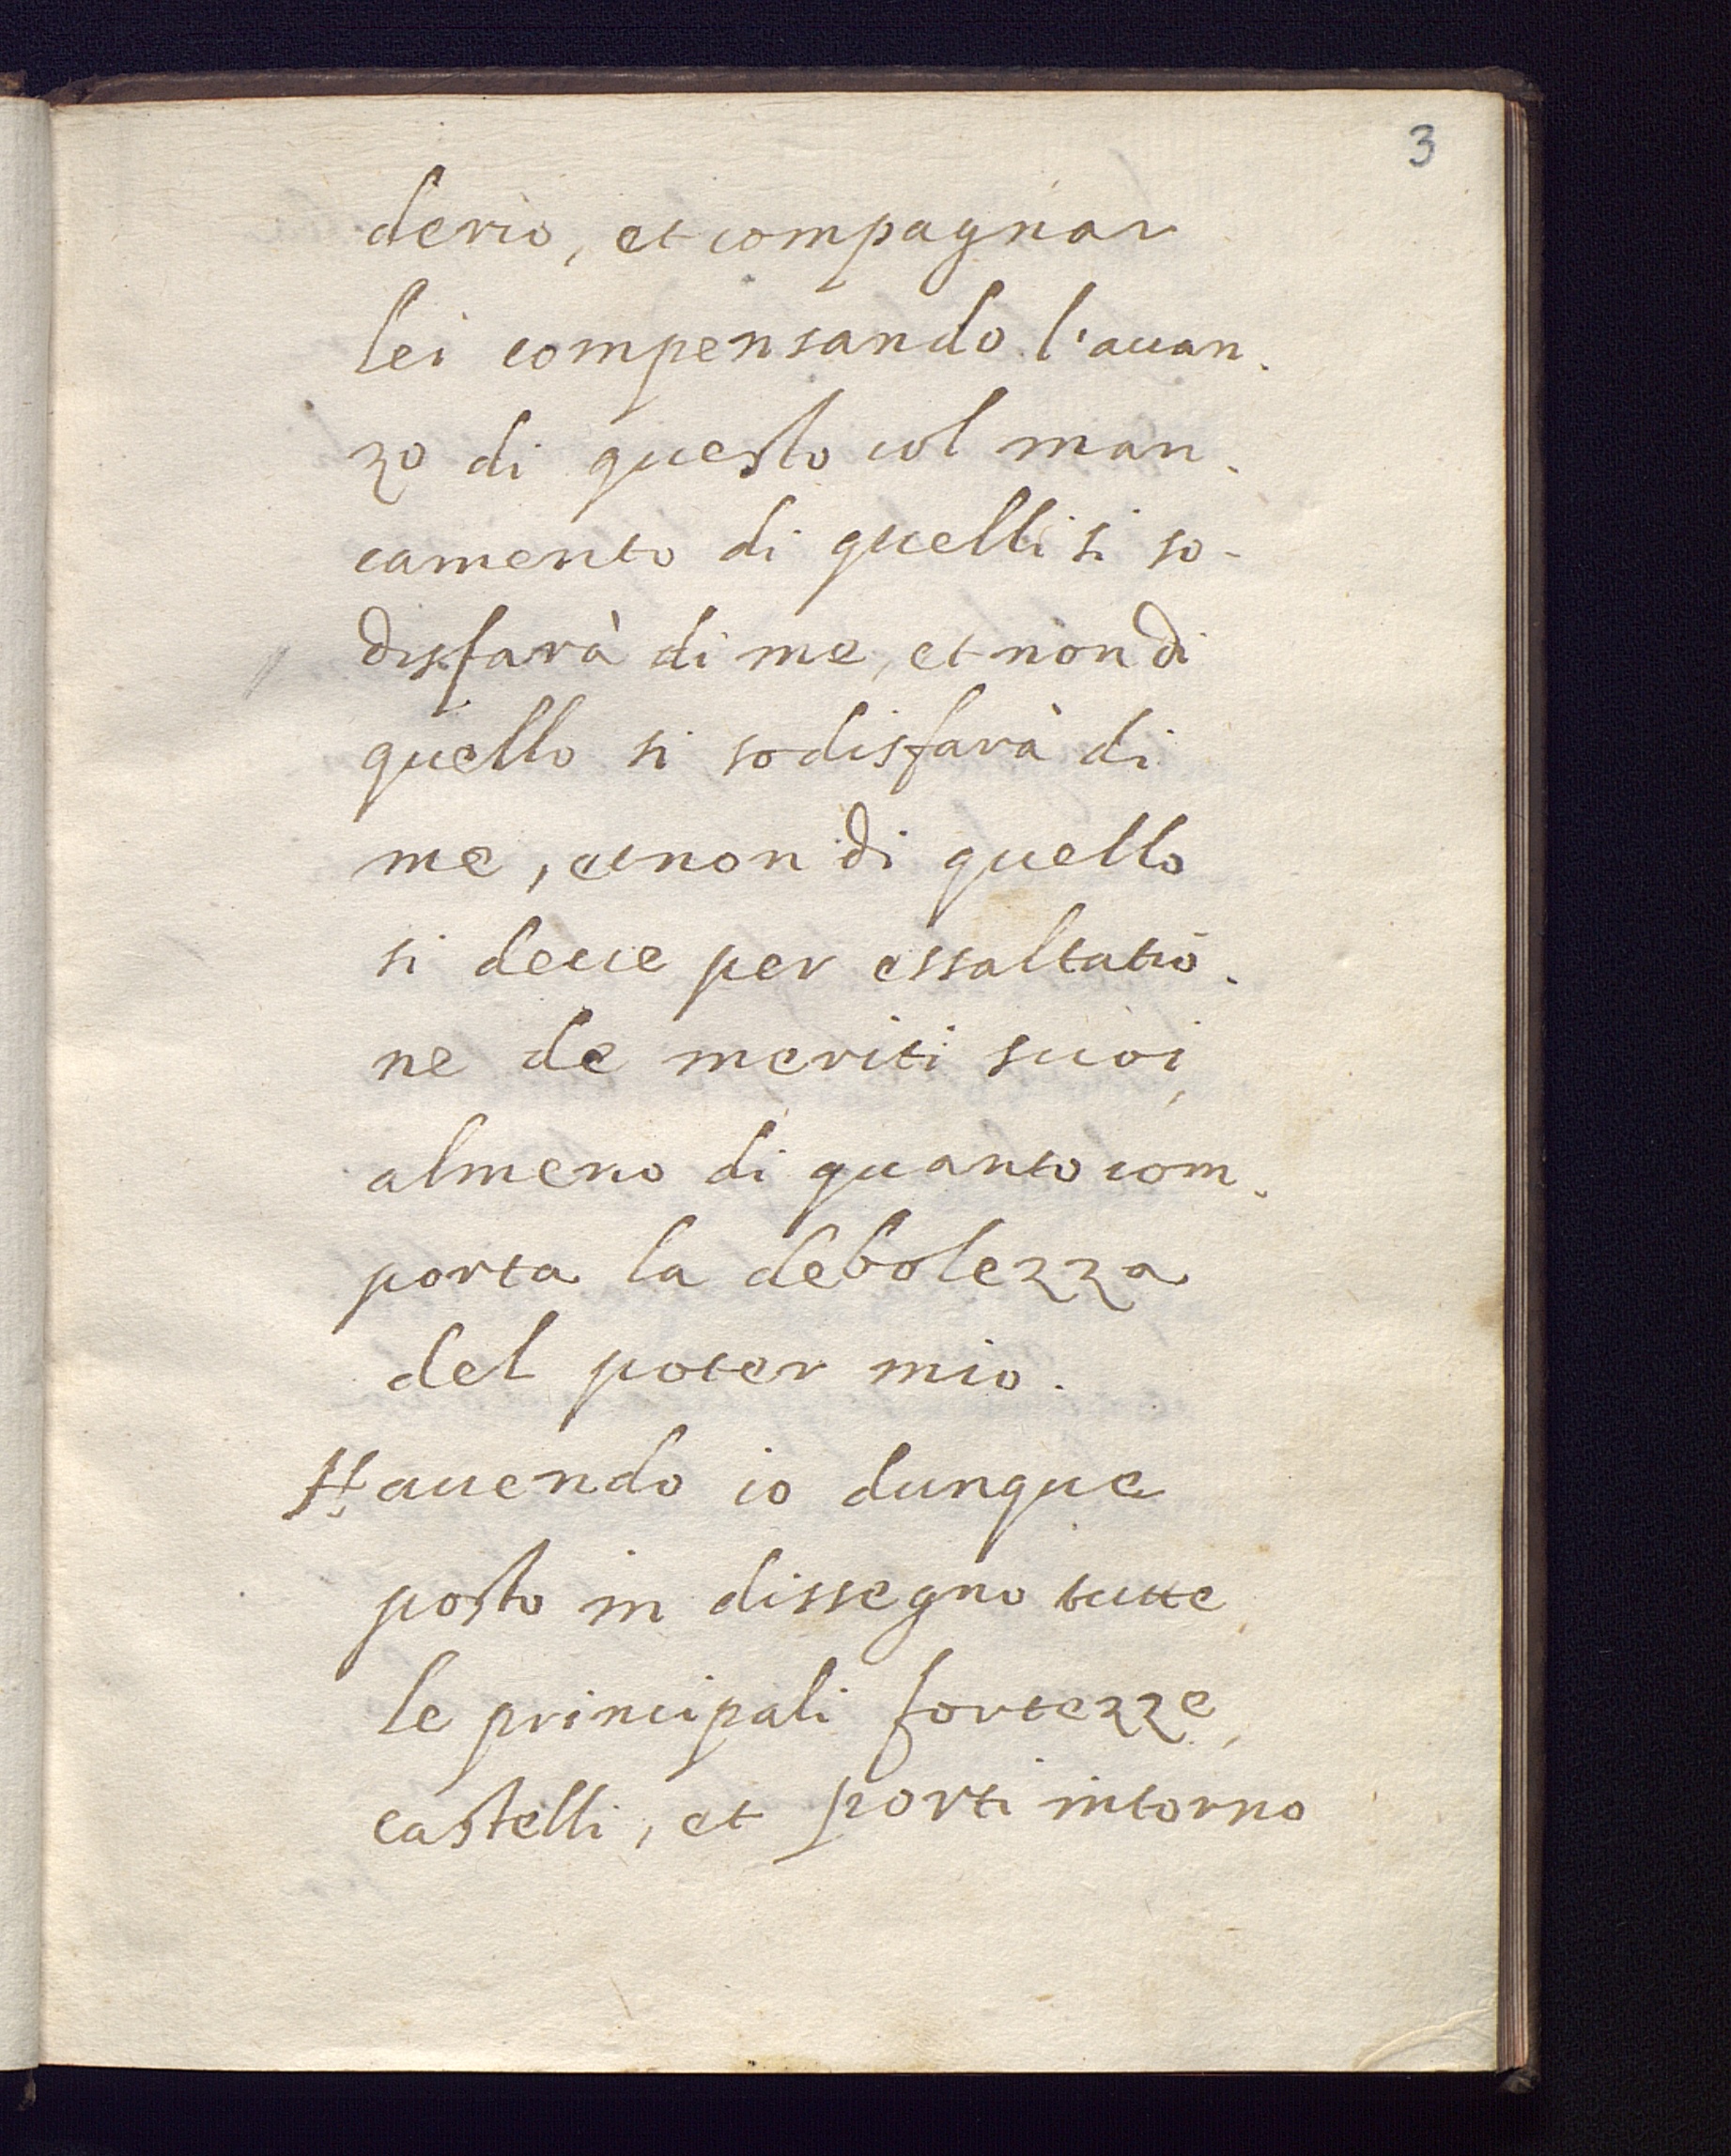 3
derio, et compagnar
lei compensando l'auan.
zo di questo col man.
camento di quelli si so-
disfarà di me, et non di
quello si sodisfarà di
me, et non di quello
si deue per essaltatio.
ne de meriti suoi,
almeno di quanto com.
porta la debolezza
del poter mio.
Hauendo io dunque
posto in dissegno tutte
le principali fortezze,
castelli, et porti intorno